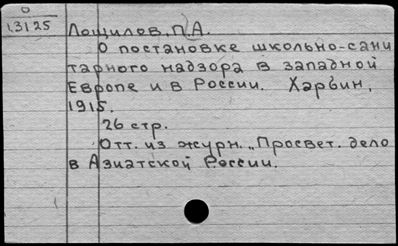 0
13125
Лощилов, П.А.
О постановке школьно-сани
тарного надзора в западной
Европе и в России. Харбин,
1915.
26 стр.
Отт. из журн. „Просвет. дело
в Азиатской России.